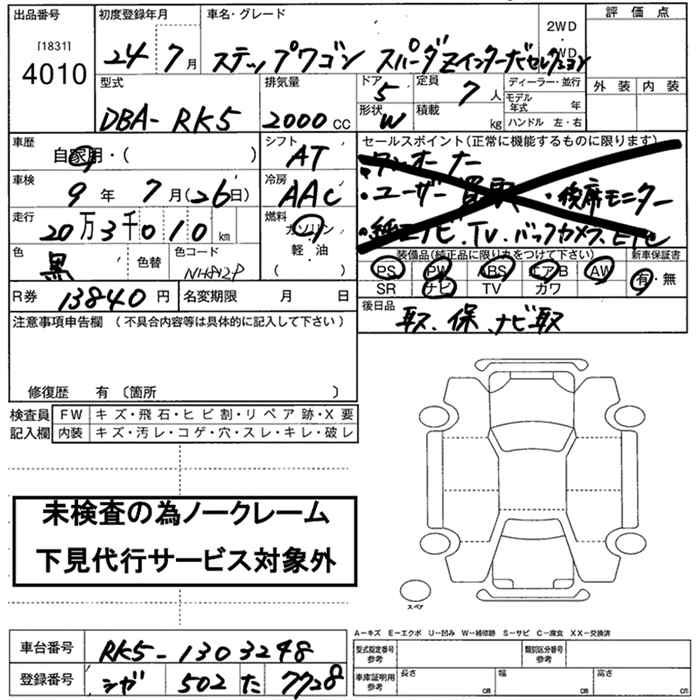 出品番号 初度登録年月 車名・グレード 評価点
[1831]
4010
24年7月 ステップワゴン スパーダZインターナビセレクション 2WD・4WD
型式 排気量 ドア 5 定員 7人 ディーラー・並行 外装 内装
モデル年式 年
DBA-RK5 2000cc 形状 W 積載 kg ハンドル 左・右
車歴 シフト セールスポイント(正常に機能するものに限ります)
自家用・( ) AT ・ワンオーナー
車検 冷房 ・ユーザー買取 ・後席モニター
9年7月(26日) AAC
走行 燃料 ・純正ナビ.TV.バックカメラ.ETC
20万3千010km ガソリン
色 色替 色コード 軽・油 装備品(純正品に限り丸をつけて下さい) 新車保証書
黒 NH812P ( ) PS PW ABS エアB AW 有・無
R券 13840円 名変期限 月 日 SR ナビ TV カワ
注意事項申告欄(不具合内容等は具体的に記入して下さい) 後日品 取、保、ナビ取
修復歴 有〔箇所 〕
検査員 FW キズ・飛石・ヒビ割・リペア跡・X要
記入欄 内装 キズ・汚レ・コゲ・穴・スレ・キレ・破レ
未検査の為ノークレーム
下見代行サービス対象外
スペア
A−キズ E−エクボ U−凹み W−補修跡 S−サビ C−腐食 XX−交換済
車台番号 RK5-1303248 型式指定番号参考 類別区分番号参考
登録番号 シガ 502 た 7728 車庫証明用参考 長さ cm 幅 cm 高さ cm